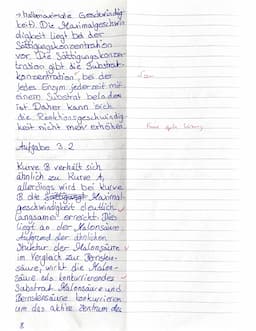 → halbmaximale Geschwindig-
keit). Die Maximalgeschwin-
digkeit liegt bei der
Sättigungskonzentration
vor. Die Sättigungskonzen-
tration gibt die Substrat-
konzentration, bei der
jedes Enzym jederzeit mit
einem Substrat beladen
ist. Daher kann sich
die Reaktionsgeschwindig-
keit nicht mehr erhöhen.
Aufgabe 3.2
Kurve B verhält sich
ähnlich zu Kurve A,
allerdings wird bei Kurve
B die Sättigungs Maximal-
geschwindigkeit deutlich
langsamer erreicht. Dies
liegt an der Malonsäure.
Aufgrund der ähnlichen
Struktur der Malonsäure
im Vergleich zur Bernstein-
säure, wirkt die Malon-
säure als konkurrierendes
Substrat. Malonsäure und
Bernsteinsäure konkurrieren
um das aktive Zentrum des
8